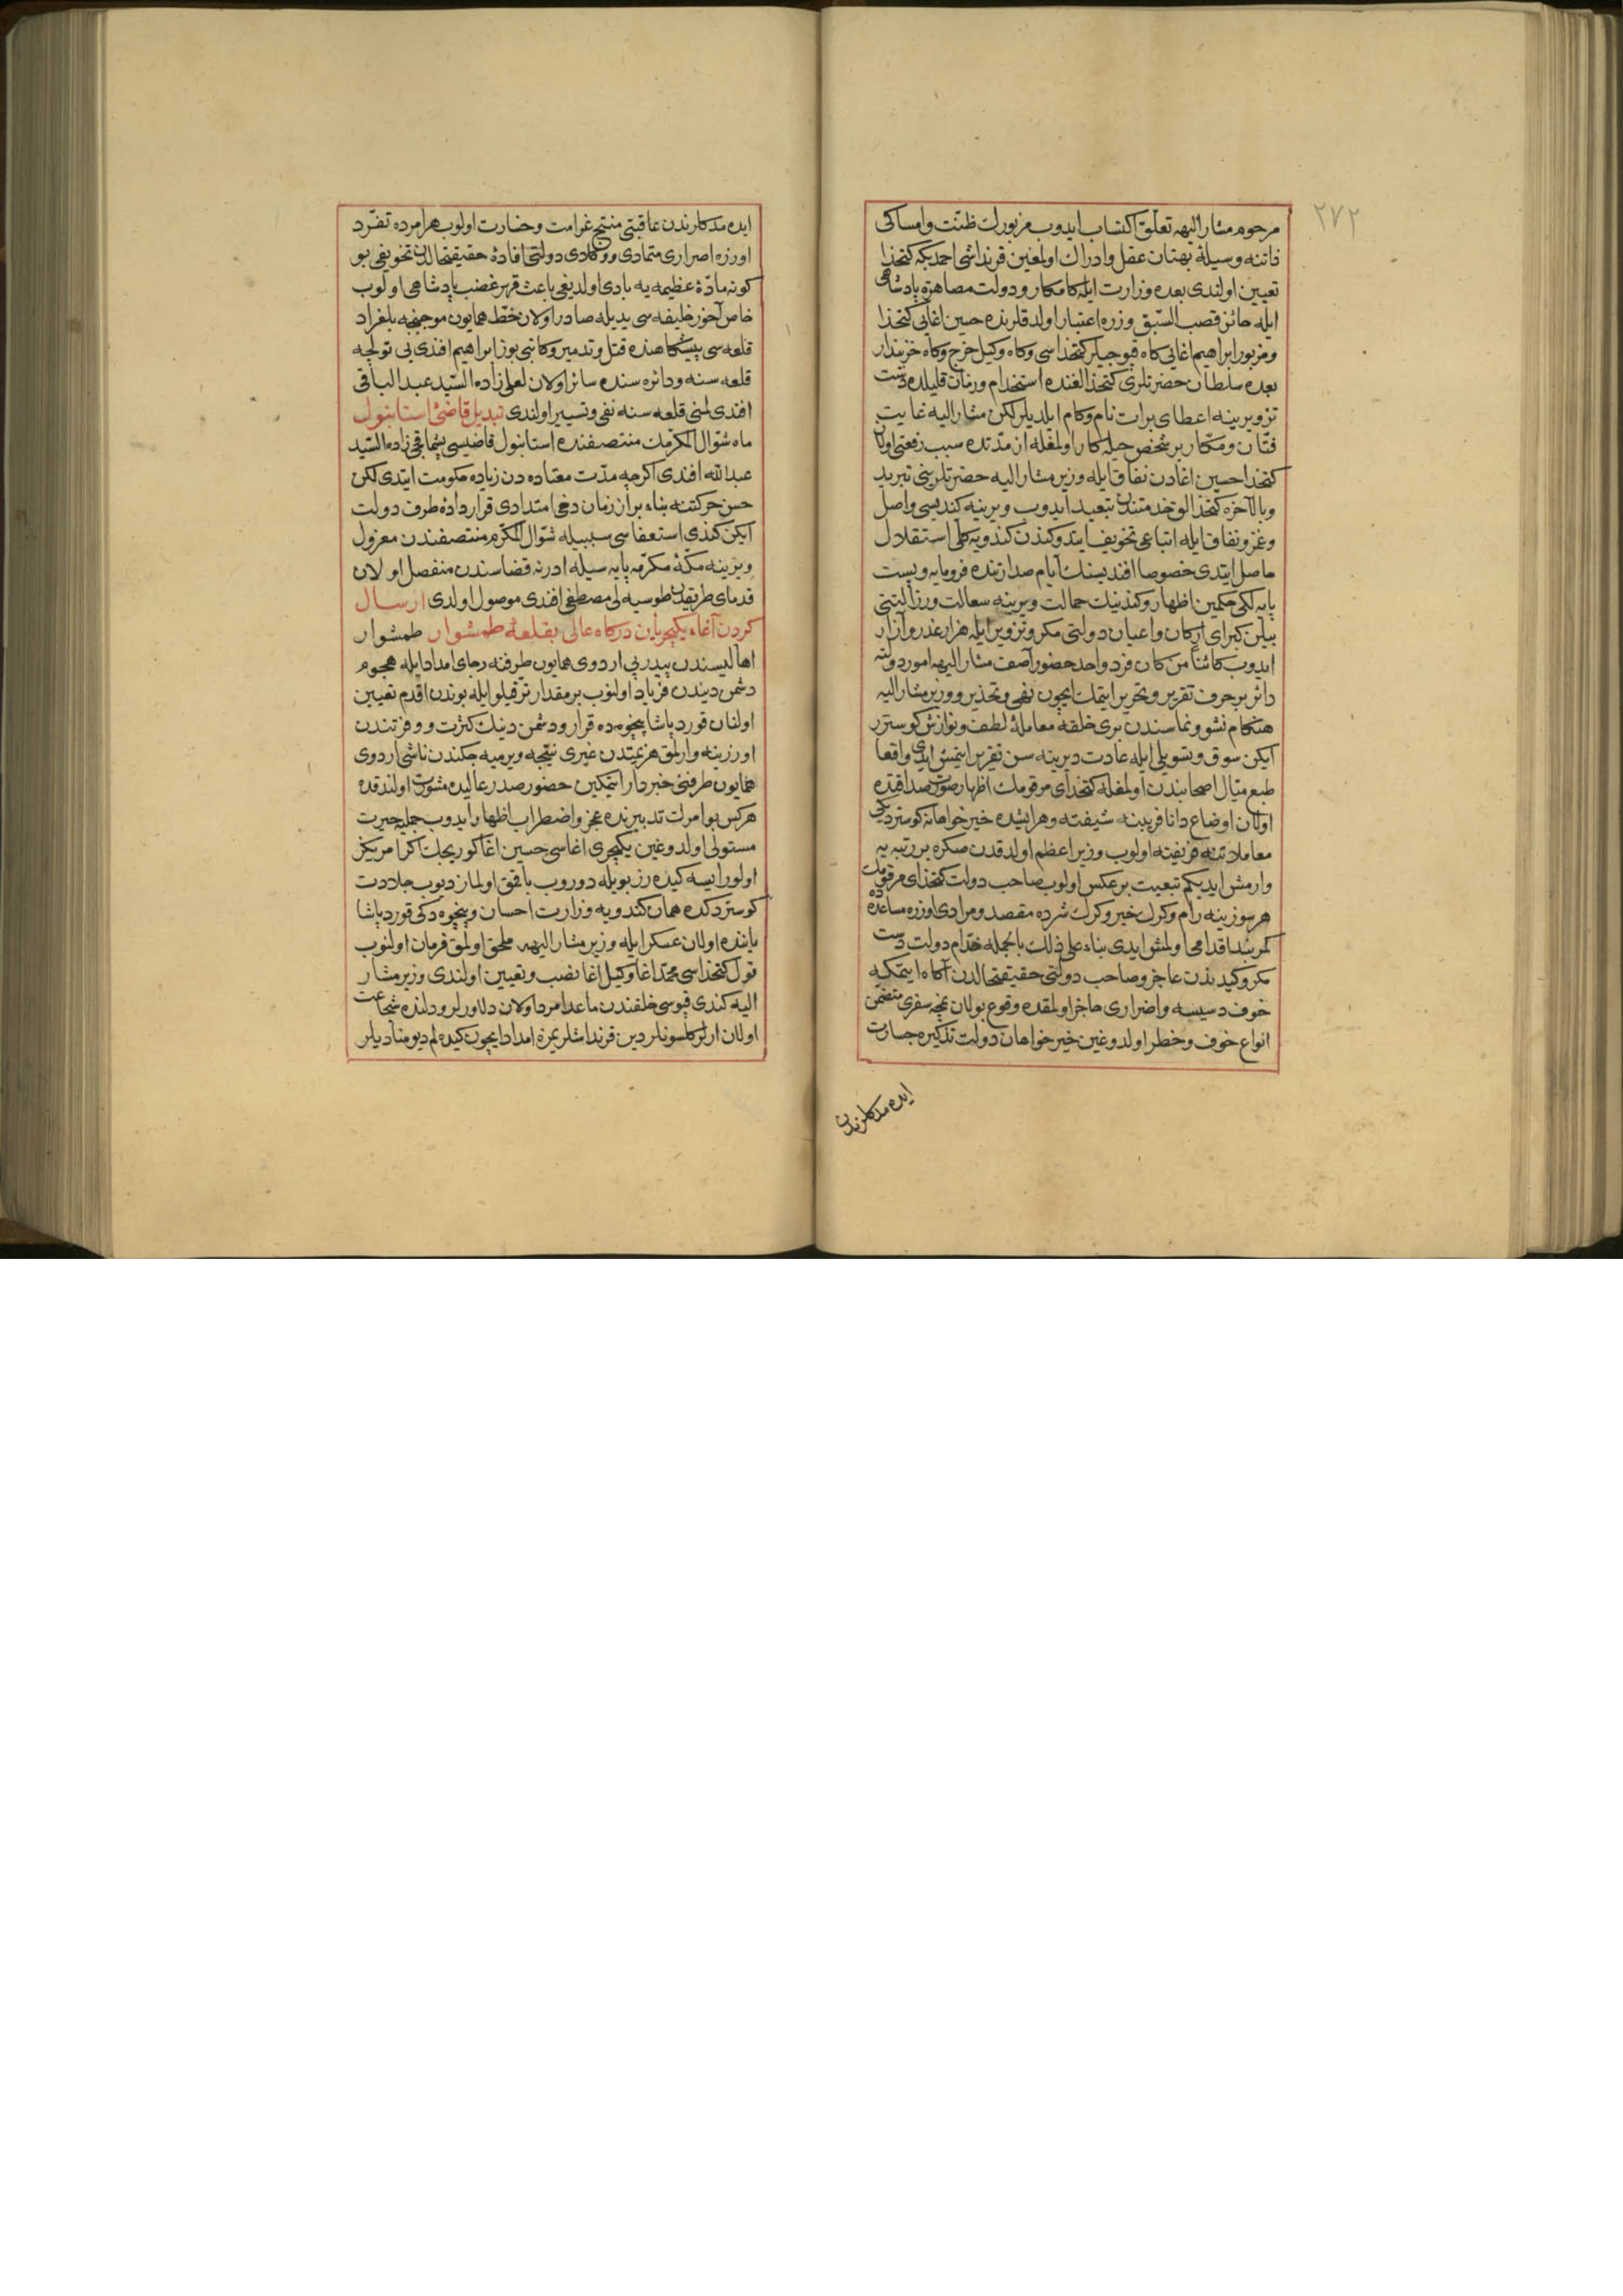 ٢٧٢
مرحوم مشار اليهه تعلق اكتساب ايدوب مزبورك ظنت وامساكى
ذاتنه وسيلهٔ بهتان عقل وادراك اولمغين قرنداشى احمد بكه كتخدا
تعيين اولندى بعده وزارت ايله كامكار ودولت مصاهرهٔ پادشاهى
ايله حائز قصب السبق وزره اعتبار اولدقلرنده حسين اغايى كتخدا
ومزبور ابراهيم اغايى كاه قپوجيلر كتخداسى وكاه وكيل خرج وكاه خزيندار
بعده سلطان حضرتلرى كتخدالغنده استخدام وزمان قليلده دست
تزويرينه اعطاى برات نام وكام ايلديلر لكن مشار اليه غايت
فتان ومكار بر شخص حيله كار اولمغله از مدتده سبب رفعتى اولان
كتخدا حسين اغادن نفاق ايله وزير مشار اليه حضرتلرينى تبريد
وبالآخره كتخدالق خدمتندن تبعيد ايدوب ويرينه كنديسى واصل
وغمز ونفاق ايله اتباعى تخويف ايتدوكندن كندويه كلى استقلال
حاصل ايتدى خصوصا افنديسنك ايام صدارتنده فرومايه وپست
پايه لكى حكمين اظهار وكندينك جهالت ويرينه سعالت ورزالتنى
بيلن كبراى اركان واعيان دولتى مكر وتزوير ايله هزار غدر وآزار
ايدوب كائنا من كان فرد واحد حضور آصف مشار اليهه امور دولته
دائر بر حرف تقرير وتحرير ايتمك ايچون نفى وتحذير ووزير مشار اليه
هنكام نشو ونماسندن برى خلقه معاملهٔ لطف ونوازش كوسترر
ايكن سوق وتسويلى ايله عادت ديرينه سن تغيير ايتمش ايدى واقعا
طبع ميال اصحابندن اولمغله كتخداى مرقومك اظهار صورت صداقتده
اولان اوضاع دانا فريبنه شيفته وهر ايشده خيرخواهانه كوستردكى
معاملاتنه فريفته اولوب وزير اعظم اولدقدن صكره بر رتبه يه
وارمش ايديكه تبعيت بر عكس اولوب صاحب دولت كتخداى مرقومك
هر سوزينه رام وكرك خير وكرك شرده مقصد ومرادى اوزره مساعده
كمربند اقدامى اولمش ايدى بناء على ذلك بالجمله خدام دولت دست
مكر وكيدندن عاجز وصاحب دولتى حقيقتحالدن آكاه ايتمكه
خوف دسيسه واضرارى حاجز اولمقده وقوع بولان بجه سفرى متضمن
انواع خوف وخطر اولدوغين خيرخواهان دولت تذكيره جسارت
ايده مدكلرندن
ايده مدكلرندن عاقبتى منتج غرامت وخسارت اولوب هر امرده تفرد
اوزره اصرارى متمادى ووكلاى دولتى افادهٔ حقيقتحالدن تخويفى بو
كونه مادهٔ عظيمه يه بادى اولديغى باعث قهر غضب پادشاهى اولوب
خاص آخور خليفه سى يديله صادر اولان خط همايون موجبنجه بلغراد
قلعه سى پيشكاهنده قتل وتدمير وكاتبى بوز ابراهيم افندى يى تولجه
قلعه سنه ودائره سنده سائر اولان لعلى زاده السيد عبد الباقى
افندى لمنى قلعه سنه نفى وتسيير اولندى تبديل قاضئ استانبول
ماه شوال المكرمك منتصفنده استانبول قاضيسى پشماقجى زاده السيد
عبد الله افندى اكرچه مدت معتاده دن زياده حكومت ايتدى لكن
حسن حركتنه بناء بر از زمان دخى امتدادى قرار دادهٔ طرف دولت
ايكن كندى استعفاسى سببيله شوال المكرم منتصفندن معزول
ويرينه مكهٔ مكرمه پايه سيله ادرنه قضاسندن منفصل اولان
قدماى طريقدن طوسيه لى مصطفى افندى موصول اولدى ارسال
كردن آغاء يكيچريان دركاه عالى بقلعهٔ طمشوار طمشوار
اهاليسندن پيدرپى اردوى همايون طرفنه رجاى امداد ايله هجوم
دشمن ديندن فرياد اولنوب بر مقدار ترقيلو ايله بوندن اقدم تعيين
اولنان قورد پاشا پنچوه ده قرار ودشمن دينك كثرت ووفرتندن
اورزينه وارلمق هزيمتدن غيرى نتيجه ويرميه جكندن ناشى اردوى
همايون طرفنى خبردار ايتمكين حضور صدر عاليده مشورت اولندقده
هركس بو امرك تدبيرنده عجز واضطراب اظهار ايدوب جمله يه حيرت
مستولى اولدوغين يكيچرى اغاسى حسين اغا كوريجك اكر امريكز
اولور ايسه كيده رز بويله دوروب باقمق اولماز ديوب جلادت
كوستردكده همان كندويه وزارت احسان وپنچوه دكى قورد پاشا
ياننده اولان عسكر ايله وزير مشار اليهه ملحق اولمق فرمان اولنوب
قول كتخداسى محمد اغا وكيل اغا نصب وتعيين اولندى وزير مشار
اليه كندى قپوسى خلقندن ماعدا مرد اولان دلاورلر ودلنده شجاعت
اولان ارلر كلسونلر دين قرنداشلريمزه امداد ايچون كيده لم ديو مناديلر